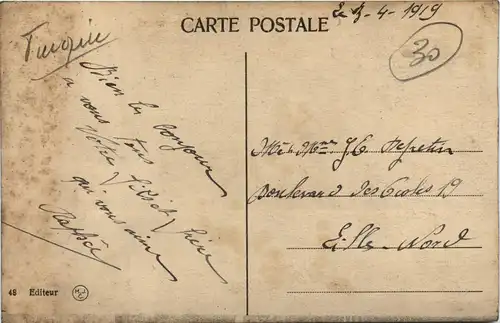 CARTE POSTALE
Le 3-4-1919
Turquie
30
Bien le bonjour
à vous tous
Votre fils et frère
qui vous aime
Mr & Mme J. C.
Boulevard des Ecoles 19
Lille-Nord
48 Editeur